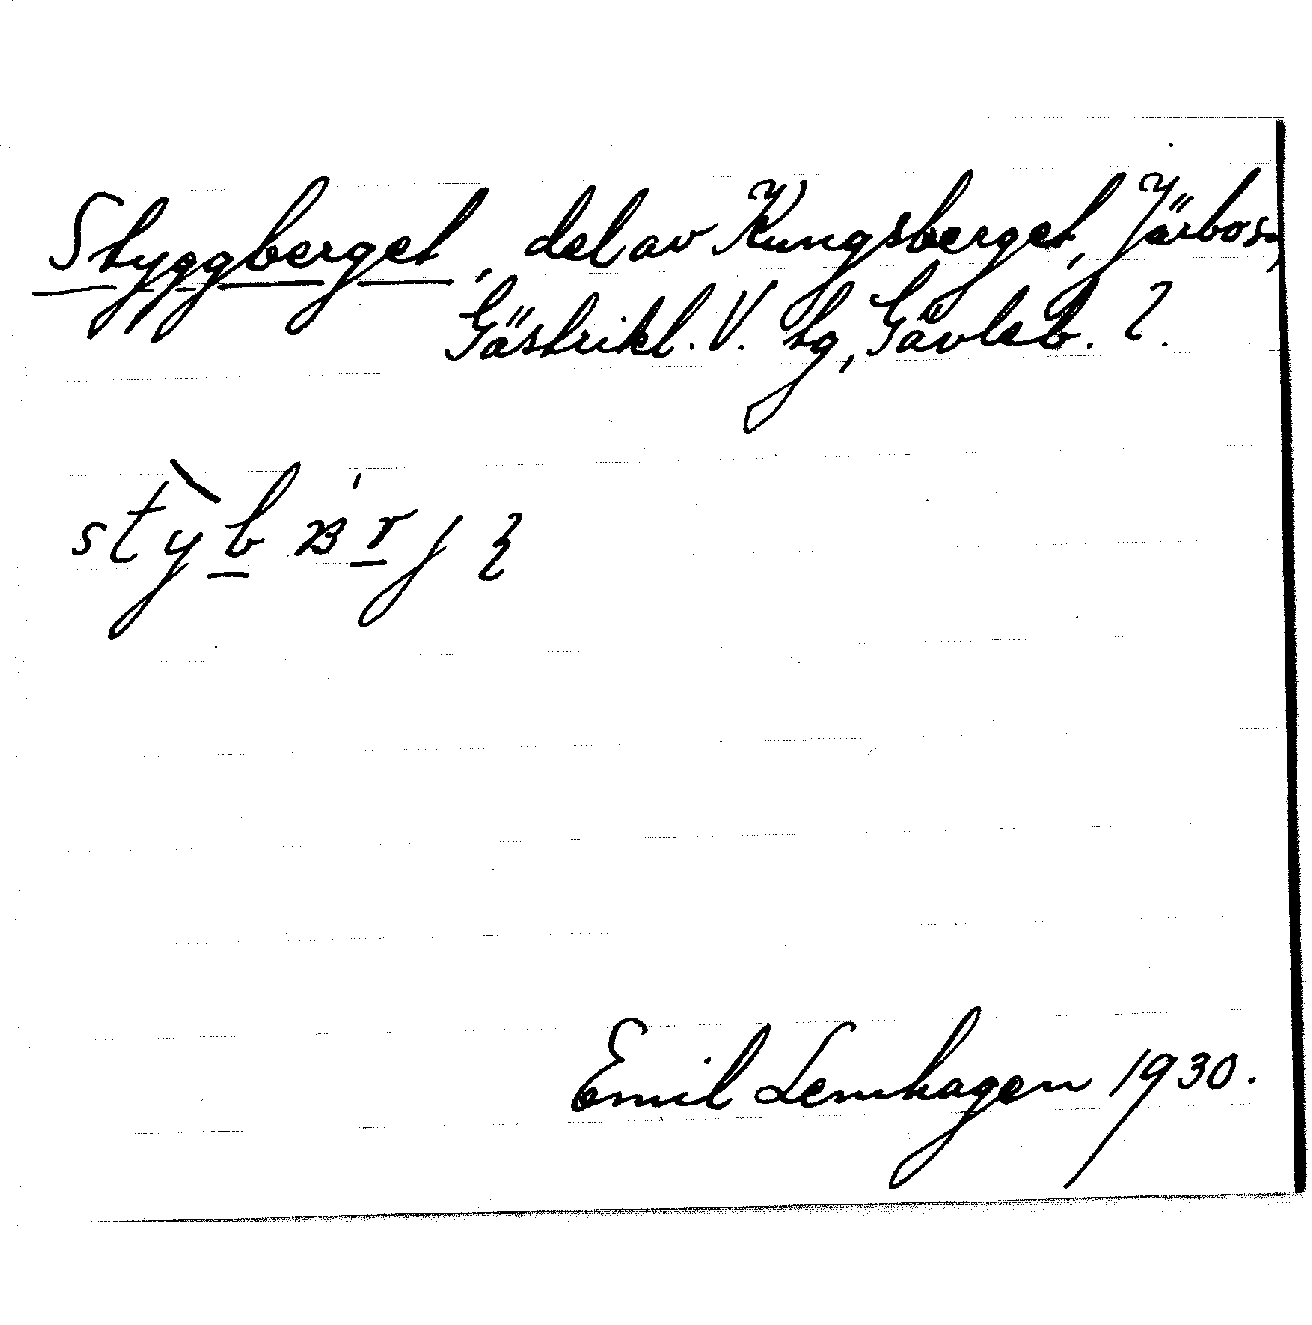 Styggberget, del av Kungsberget, Järbo s:n,
Gästrikl. V. tg, Gävleb. l.
Emil Lenhagen 1930.